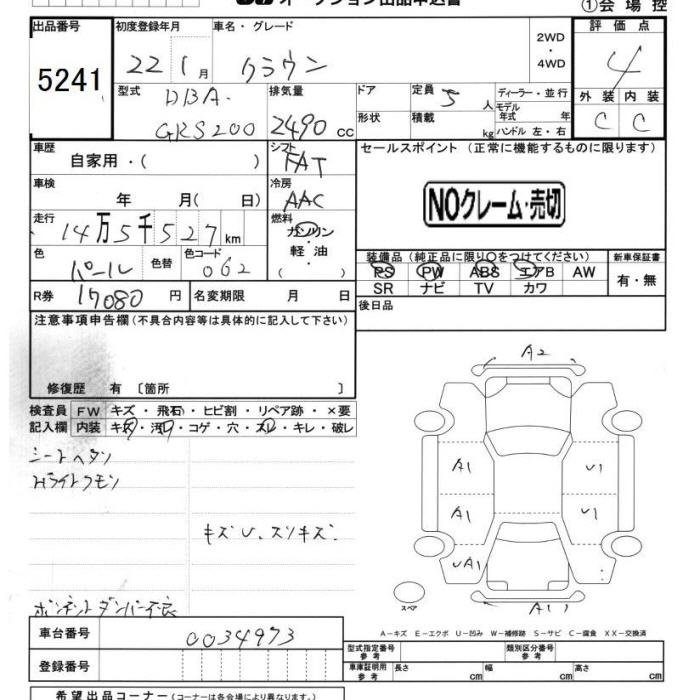 オークション出品申込書
①会場控
出品番号
5241
初度登録年月
22 1月
車名・グレード
クラウン
2WD
・
4WD
評価点
4
外装 内装
C C
型式
DBA-
GRS200
排気量
2490 cc
ドア
形状
定員 5 人
積載 kg
ディーラー・並行
モデル年式 年
ハンドル 左・右
車歴
自家用・( )
シフト
FAT
セールスポイント (正常に機能するものに限ります)
車検
年 月( 日)
冷房
AAC
NOクレーム・売切
走行
14万5千527km
燃料
ガソリン
軽油
( ・ )
色
パール
色替
色コード
062
装備品 (純正品に限り〇をつけてください)
PS PW ABS エアB AW
SR ナビ TV カワ
新車保証書
有・無
R券 17080 円
名変期限 月 日
後日品
注意事項申告欄 (不具合内容等は具体的に記入して下さい)
修復歴 有 〔箇所 〕
検査員 FW キズ・飛石・ヒビ割・リペア跡・×要
記入欄 内装 キズ・汚レ・コゲ・穴・スレ・キレ・破レ
シートヘタリ
Hライトクモリ
キズU、スリキズ.
ボンネットダンパー不良
A2
A1 U1
A1 U1
UA1
A1
スペア
A－キズ E－エクボ U－凹み W－補修跡 S－サビ C－腐食 XX－交換済
車台番号
0034973
登録番号
型式指定番号
参考
類別区分番号
参考
車庫証明用
参考
長さ cm
幅 cm
高さ cm
希望出品コーナー (コーナーは各会場により異なります。)